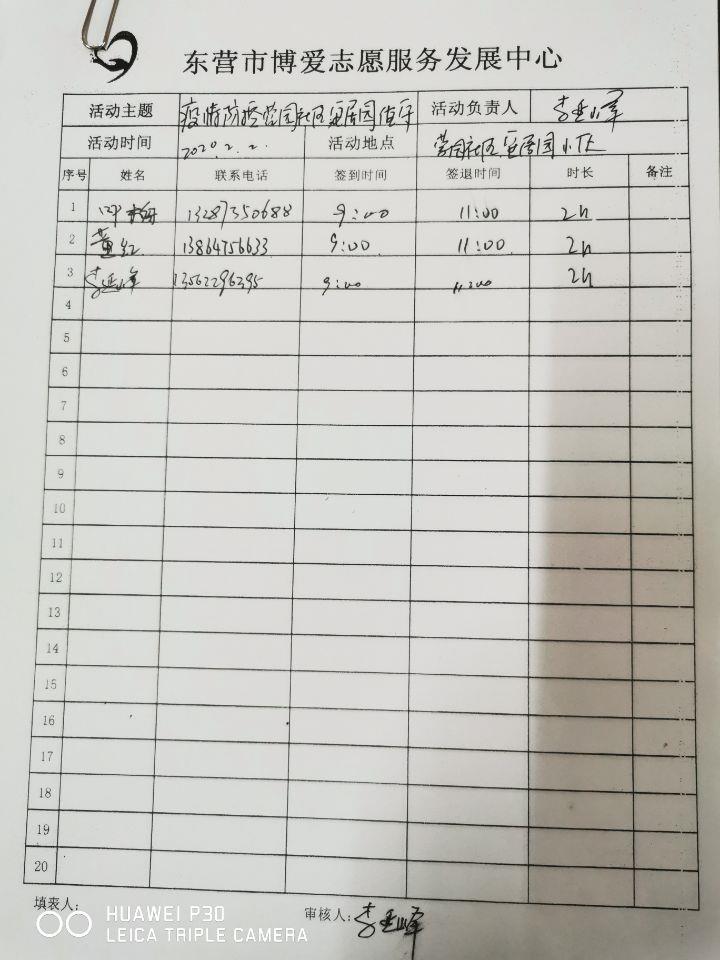 东营市博爱志愿服务发展中心
活动主题 疫情防控营园社区居园值守 活动负责人
活动时间 2020.2.2. 活动地点 营园社区居园小区
序号 姓名 联系电话 签到时间 签退时间 时长 备注
1 13287350688 9:00 11:00 2h
2 黄红 13864756633 9:00 11:00 2h
3 13562296395 9:00 11:00 2h
4
5
6
7
8
9
10
11
12
13
14
15
16
17
18
19
20
填表人： 审核人：
HUAWEI P30
LEICA TRIPLE CAMERA